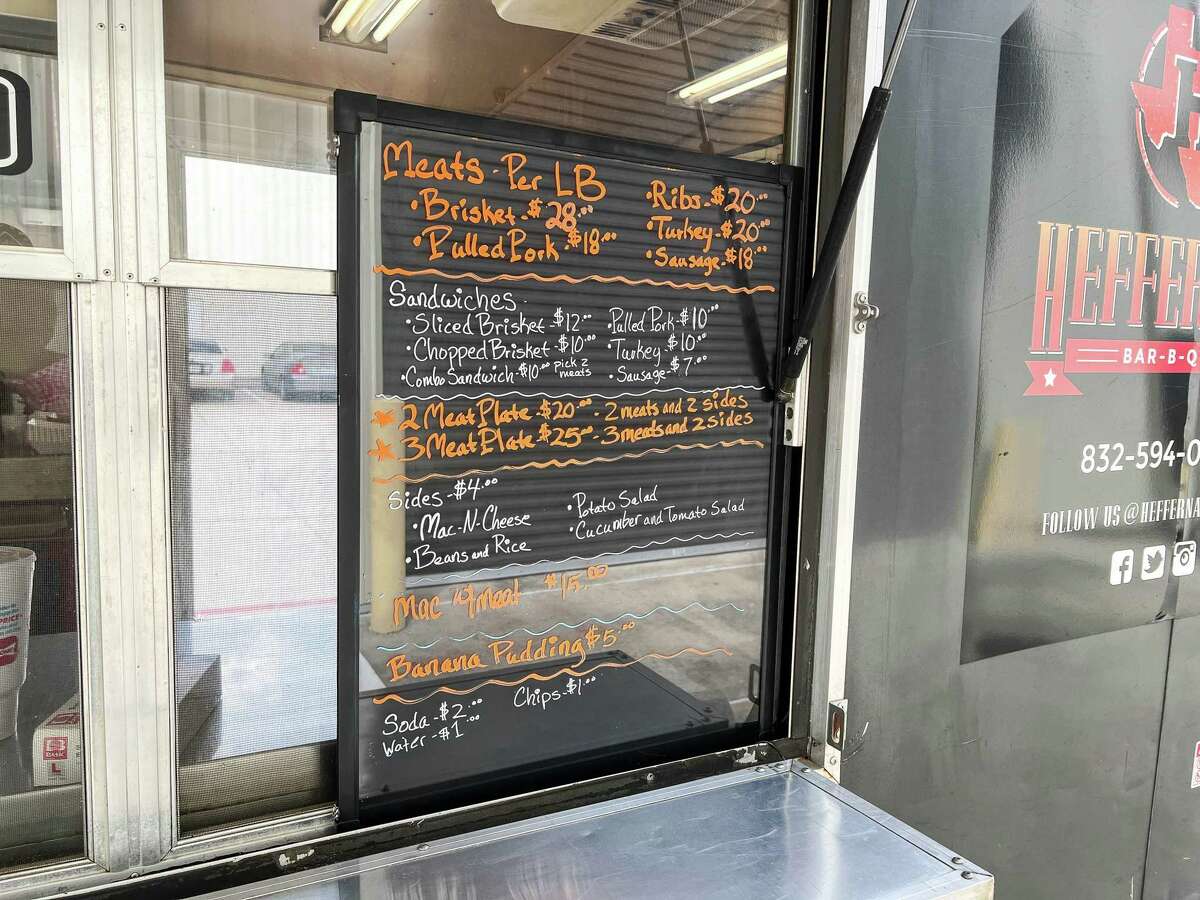 Meats - Per LB
• Brisket - $28.00
• Pulled Pork $18.00
• Ribs - $20.00
• Turkey - $20.00
• Sausage - $18.00
Sandwiches -
• Sliced Brisket - $12.00
• Chopped Brisket - $10.00
• Combo Sandwich - $10.00 pick 2 meats
• Pulled Pork - $10.00
• Turkey - $10.00
• Sausage - $7.00
2 Meat Plate - $20.00 - 2 meats and 2 sides
3 Meat Plate $25.00 - 3 meats and 2 sides
Sides - $4.00
• Mac-N-Cheese
• Beans and Rice
• Potato Salad
• Cucumber and Tomato Salad
Mac w/ meat $15.00
Banana Pudding $5.00
Chips - $1.00
Soda - $2.00
Water - $1.00
HEFFER
BAR-B-Q
832-594-0
FOLLOW US @HEFFERNA
BASIC
L